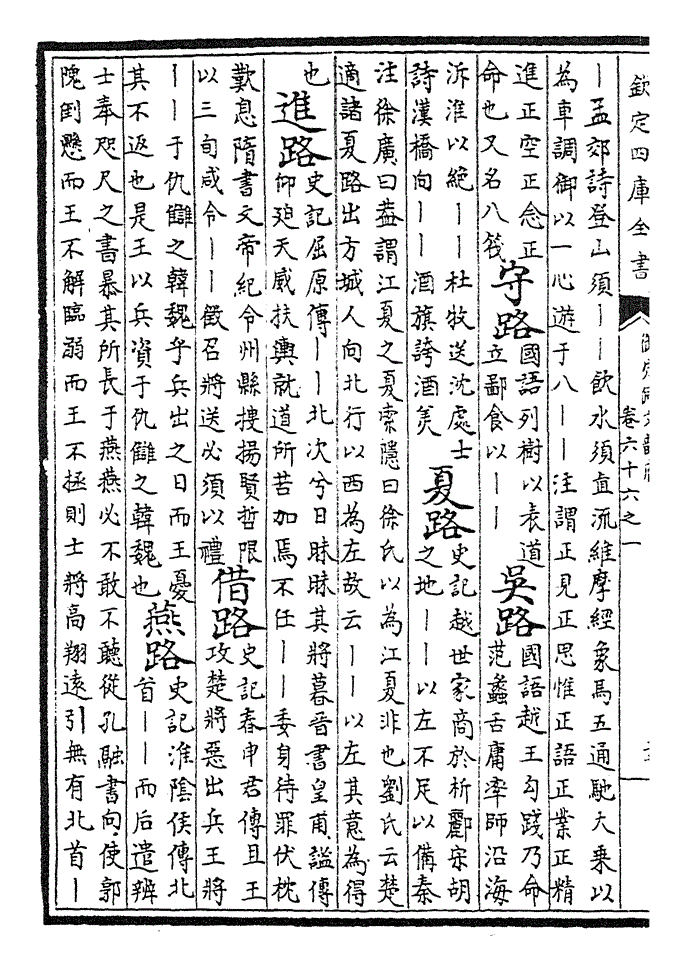 欽定四庫全書
御定佩文韻府
卷六十六之一
〡孟郊詩登山須〡〡飲水須直流維摩經象馬五通馳大乗以
為車調御以一心遊于八〡〡注謂正見正思惟正語正業正精
進正空正念正
命也又名八筏
守路
國語列樹以表道
立鄙食以〡〡
吳路
國語越王勾踐乃命
范蠡舌庸率師沿海
泝淮以絶〡〡杜牧送沈處士
詩漢橋向〡〡酒旗誇酒美
夏路
史記越世家商於析酈宋胡
之地〡〡以左不足以備秦
注徐廣曰葢謂江夏之夏索隱曰徐氏以為江夏非也劉氏云楚
適諸夏路出方城人向北行以西為左故云〡〡以左其意為得
也
進路
史記屈原傳〡〡北次兮日昧昧其將暮晉書皇甫謐傳
仰廹天威扶輿就道所苦加焉不任〡〡委身待罪伏枕
歎息隋書文帝紀令州縣搜揚賢哲限
以三旬咸令〡〡徵召將送必須以禮
借路
史記春申君傳且王
攻楚將惡出兵王將
〡〡于仇讐之韓魏乎兵出之日而王憂
其不返也是王以兵資于仇讐之韓魏也
燕路
史記淮陰侯傳北
首〡〡而后遣辨
士奉咫尺之書暴其所長于燕燕必不敢不聽從孔融書向使郭
隗倒懸而王不解臨弱而王不拯則士將高翔遠引無有北首〡